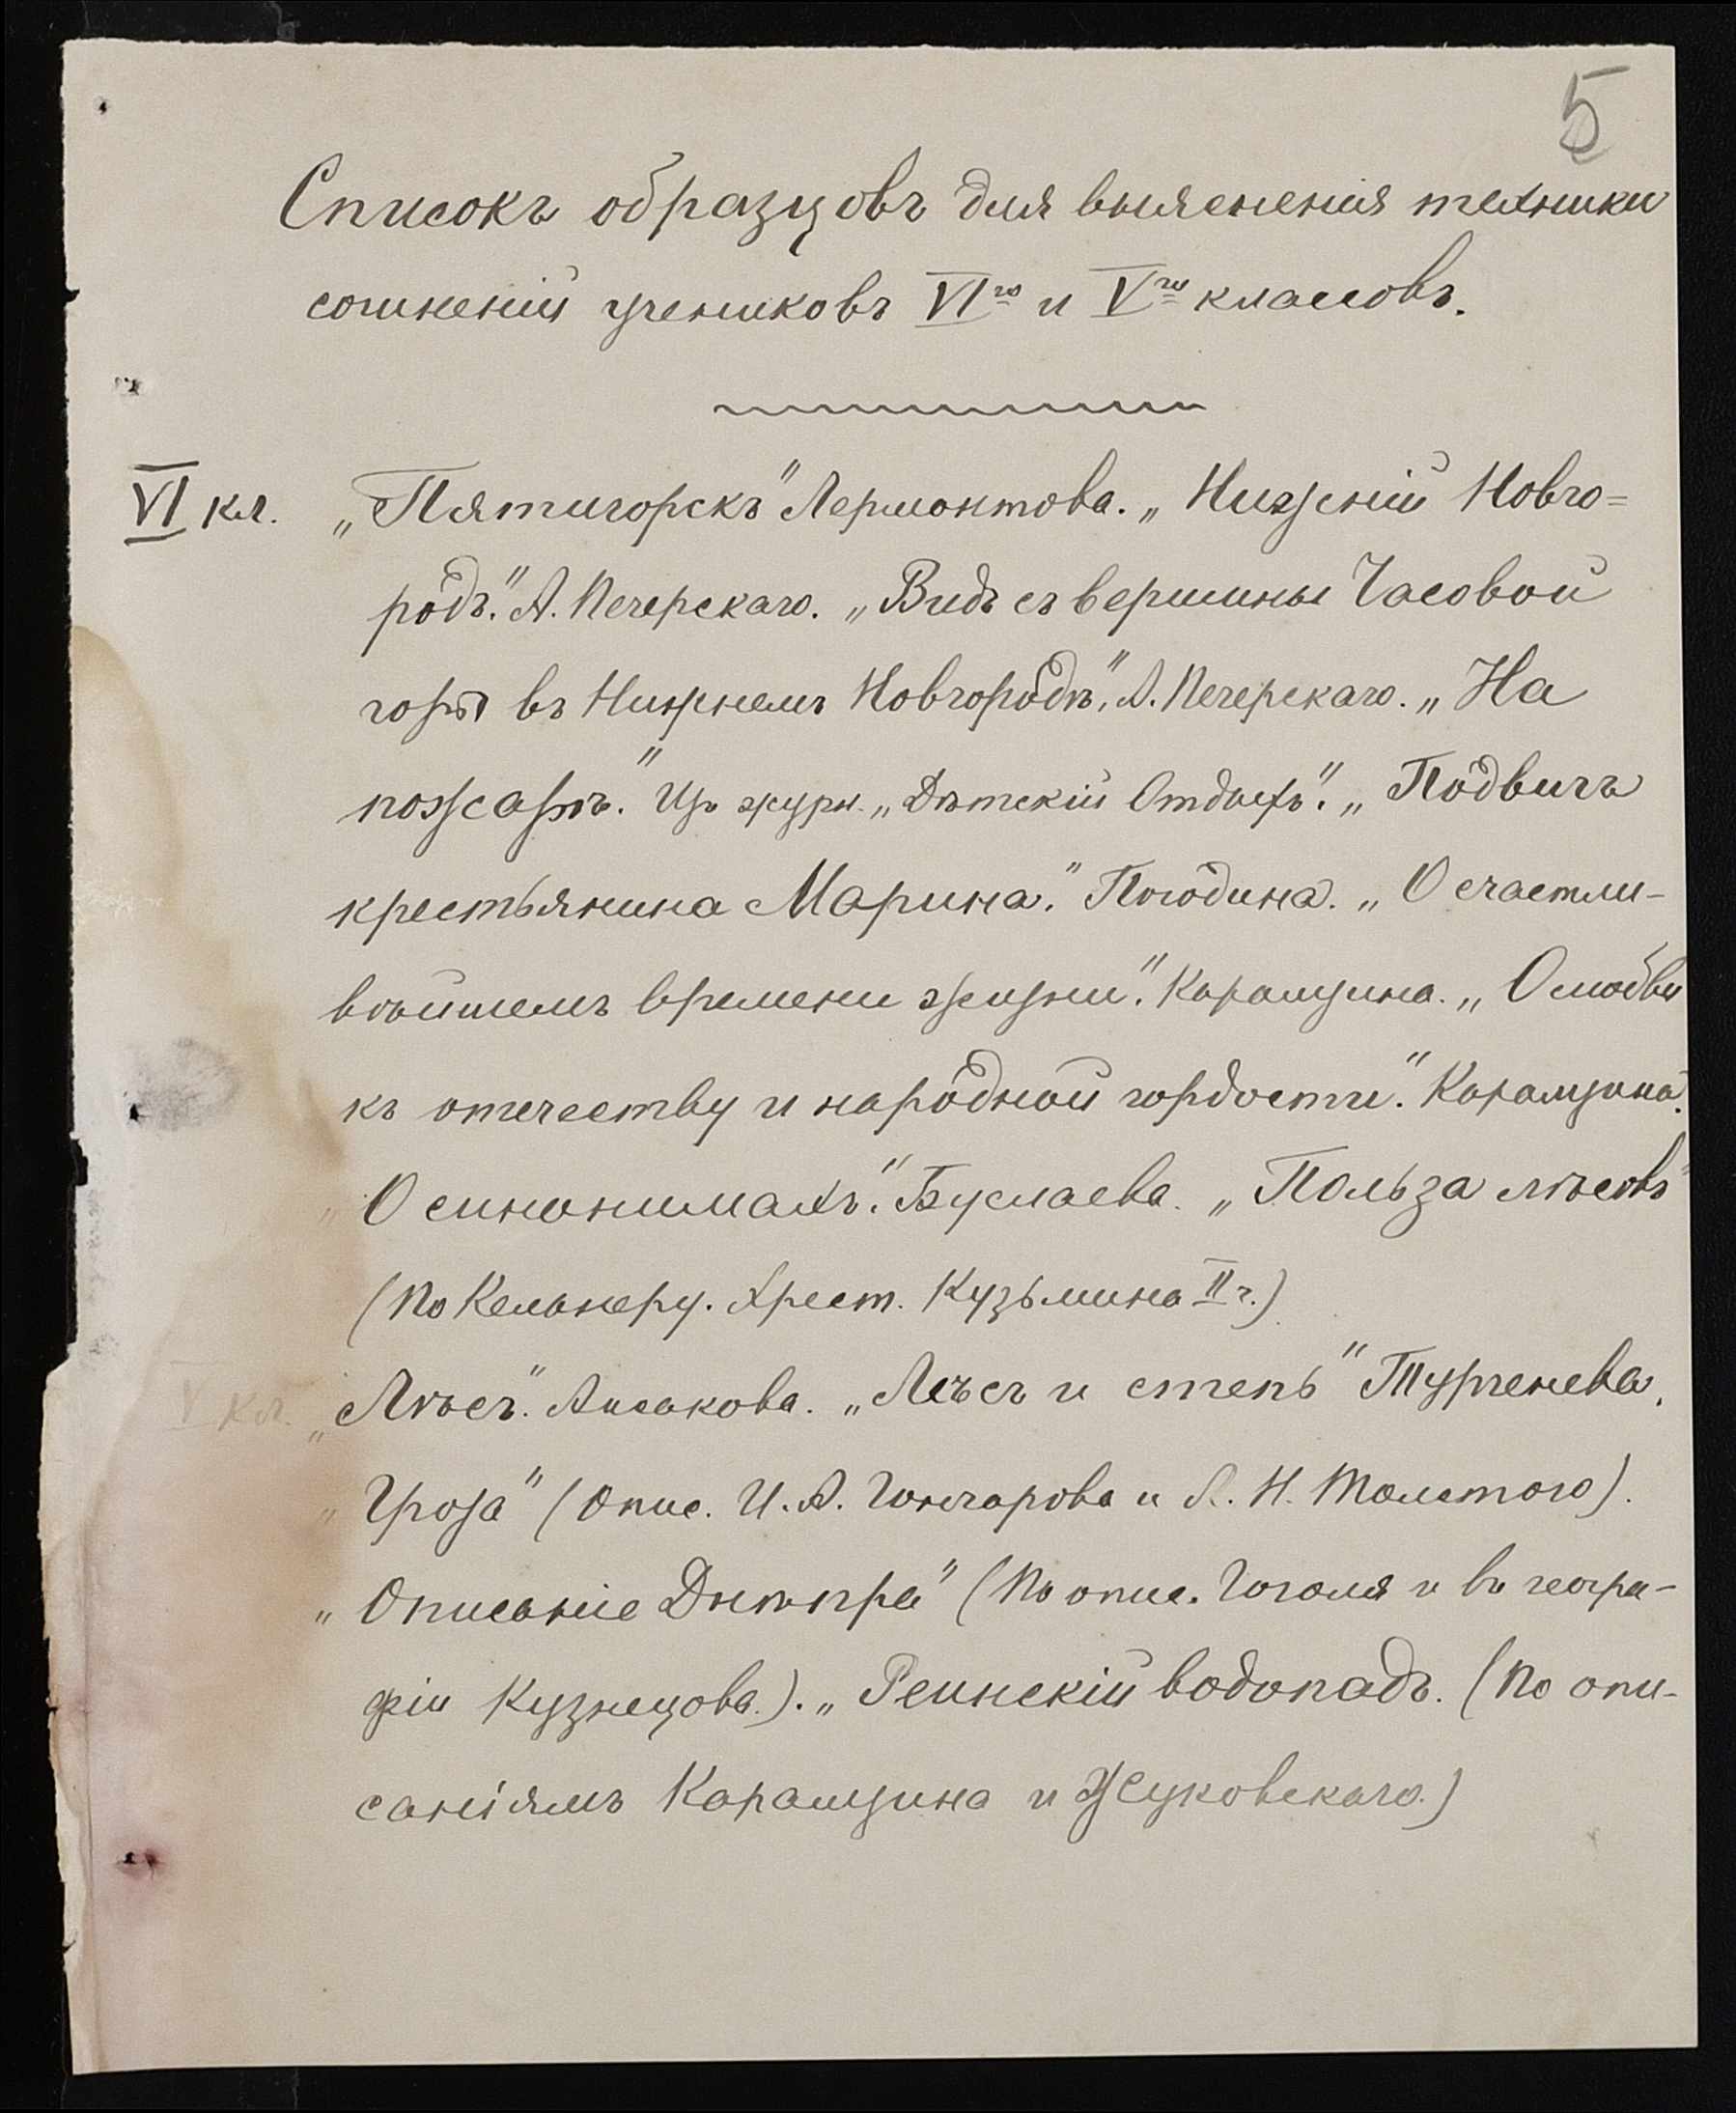 5
Списокъ образцовъ для выясненія техники
сочиненій учениковъ VIго и Vго классовъ.
VI кл. „Пятигорскъ" Лермонтова. „Нижній Новго=
родъ." А. Печерскаго. „Видъ съ вершины Часовой
горы въ Нижнемъ Новгородѣ", А. Печерскаго. „На
пожарѣ." Изъ журн. „Дѣтскій Отдыхъ". „Подвигъ
крестьянина Марина." Погодина. „О счастли-
вѣйшемъ времени жизни." Карамзина. „О любви
къ отечеству и народной гордости." Карамзина.
„О синонимахъ." Буслаева. „Польза лѣсовъ"
(По Кельнеру. Хрест. Кузьмина II ч.)
V кл. „Лѣсъ." Аксакова. „Лѣсъ и степь" Тургенева.
„Гроза" (Опис. И. А. Гончарова и Л. Н. Толстого).
„Описаніе Днѣпра" (По опис. Гоголя и въ геогра-
фіи Кузнецова.). „Рейнскій водопадъ. (По опи-
саніямъ Карамзина и Жуковскаго.)